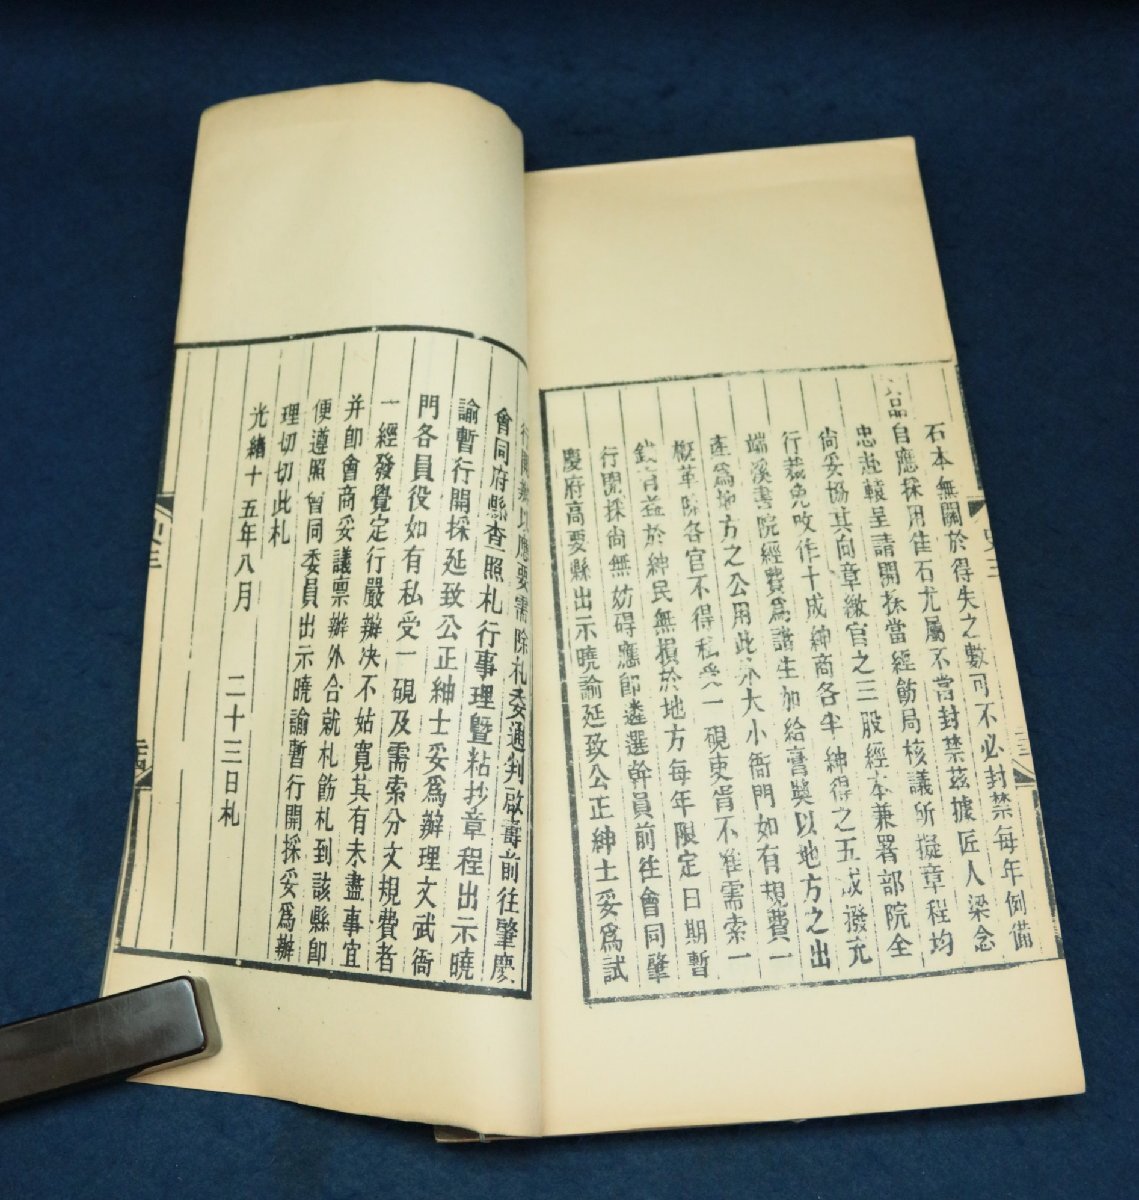 石本無關於得失之數可不必封禁每年例備
品自應採用佳石尤屬不當封禁茲據匠人梁念
忠赴轅呈請開採當經飭局核議所擬章程均
尙妥協其向章繳官之三股經本兼署部院全
行裁免改作十成紳商各半紳得之五成撥充
端溪書院經費爲諸生加給膏奬以地方之出
產爲地方之公用此外大小衙門如有規費一
槪革除各官不得私受一硯吏胥不准需索一
錢有益於紳民無損於地方每年限定日期暫
行開採尙無妨碍應卽遴選幹員前往會同肇
慶府高要縣出示曉諭延致公正紳士妥爲試
以應要需除札委通判啟壽前往肇慶
會同府縣查照札行事理曁粘抄章程出示曉
諭暫行開採延致公正紳士妥爲辦理文武衙
門各員役如有私受一硯及需索分文規費者
一經發覺定行嚴辦決不姑寬其有未盡事宜
并卽會商妥議禀辦外合就札飭札到該縣卽
便遵照會同委員出示曉諭暫行開採妥爲辦
理切切此札
光緖十五年八月 二十三日札
史三